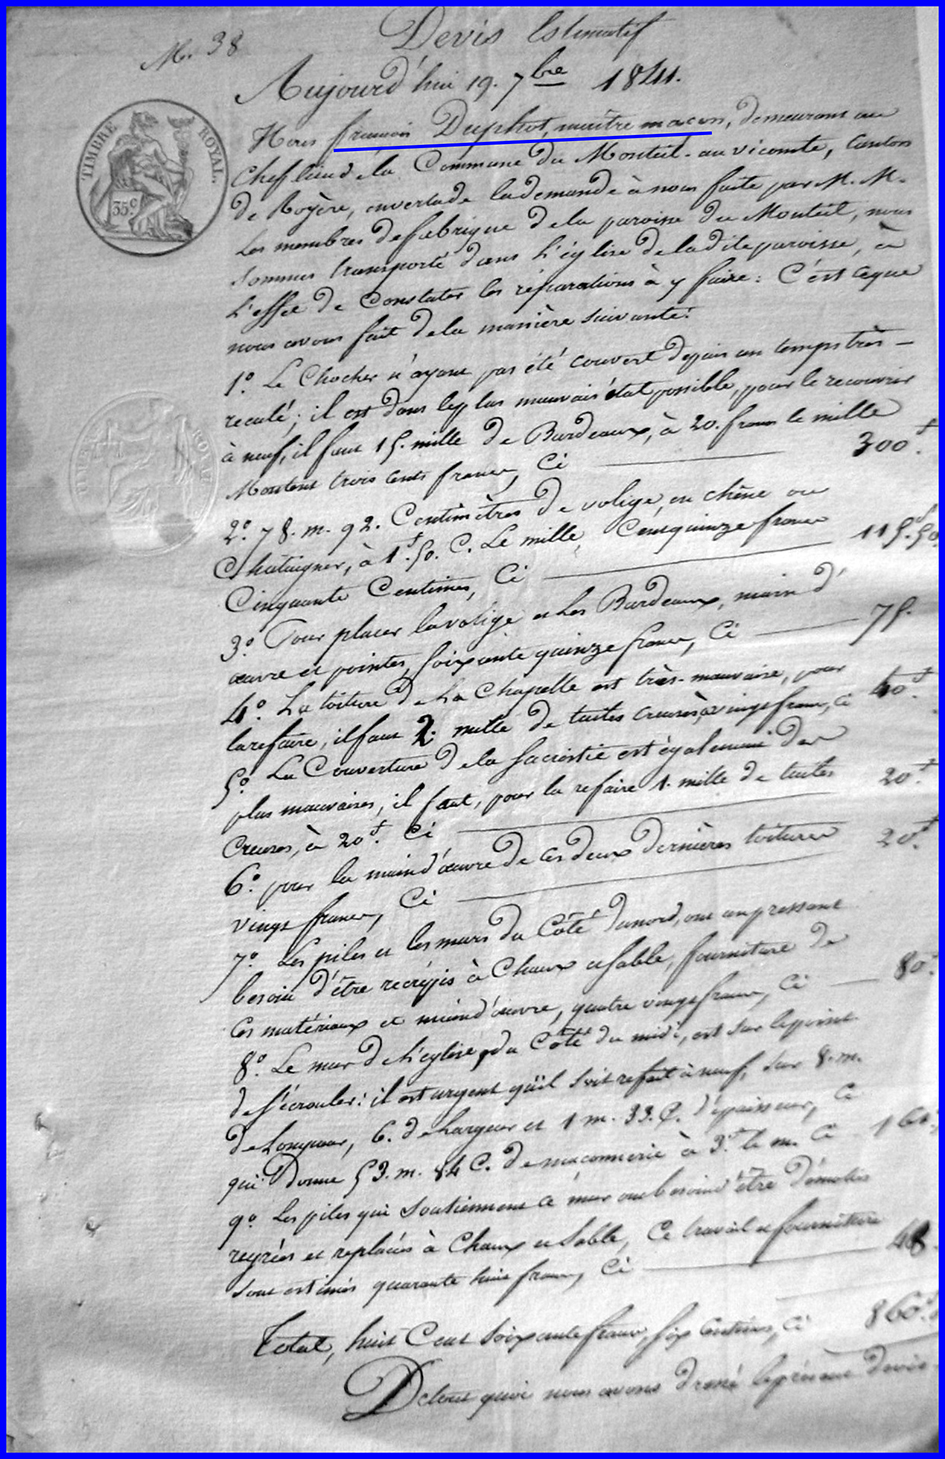 M. 38
Devis Estimatif
Aujourd'hui 19. 7bre 1844.
TIMBRE ROYAL.
35c
Nous françois Duphot, maître maçon, demeurant au
Chef lieu de la Commune du Monteil-au vicomte, Canton
de Royère, en vertu de la demande à nous faite par M. M.
les membres de fabrique de la paroisse du Monteil, nous
sommes transporté dans l'église de la dite paroisse, à
l'effet de Constater les réparations à y faire: C'est ce que
nous avons fait de la manière suivante:
1o. Le Clocher n'ayant pas été couvert depuis un temps très-
reculé, il est dans le plus mauvais état possible, pour le recouvrir
à neuf, il faut 15. mille de Bardeaux, à 20. francs le mille
Montent trois cents francs, Ci 300f.
2o. 78. m. 92. Centimètres de volige, en chêne ou
Chataignier, à 1f.50.C. Le mille, Cent quinze francs
Cinquante Centimes, Ci 115f.50
3o. Pour placer la volige et les Bardeaux, main d'
œuvre et pointes, soixante quinze francs, Ci 75.
4o. La toiture de La Chapelle est très-mauvaise, pour
la refaire, il faut 2. mille de tuiles creuses à vingt francs, ci 40f.
5o. La Couverture de la Sacristie est également des
plus mauvaises, il faut, pour la refaire 1. mille de tuiles
Creuses, à 20f. Ci 20f.
6o. pour la main d'œuvre de ces deux dernières toitures
vingt francs, Ci 20f.
7o. Les piles et les murs du Côté du nord, ont un pressant
besoin d'être recrépis à Chaux et Sable, fourniture de
Ces matériaux et main d'œuvre, quatre vingt francs, Ci 80f.
8o. Le mur de l'église du Côté du midi, est sur le point
de s'écrouler: il est urgent qu'il soit refait à neuf, sur 8. m.
de Longueur, 6. de Largeur et 1 m. 33. C. d'épaisseur, Ce
qui Donne 53. m. 84 C. de maçonnerie à 3f. le m. Ci
9o. Les piles qui soutiennent ce mur ont besoin d'être démolies
et replacées à Chaux et Sable, Ce travail et fourniture
sont estimés quarante huit francs, Ci 48.
Total, huit Cent soixante francs, six Centimes, ci 860f.
De tout quoi nous avons dressé le présent devis